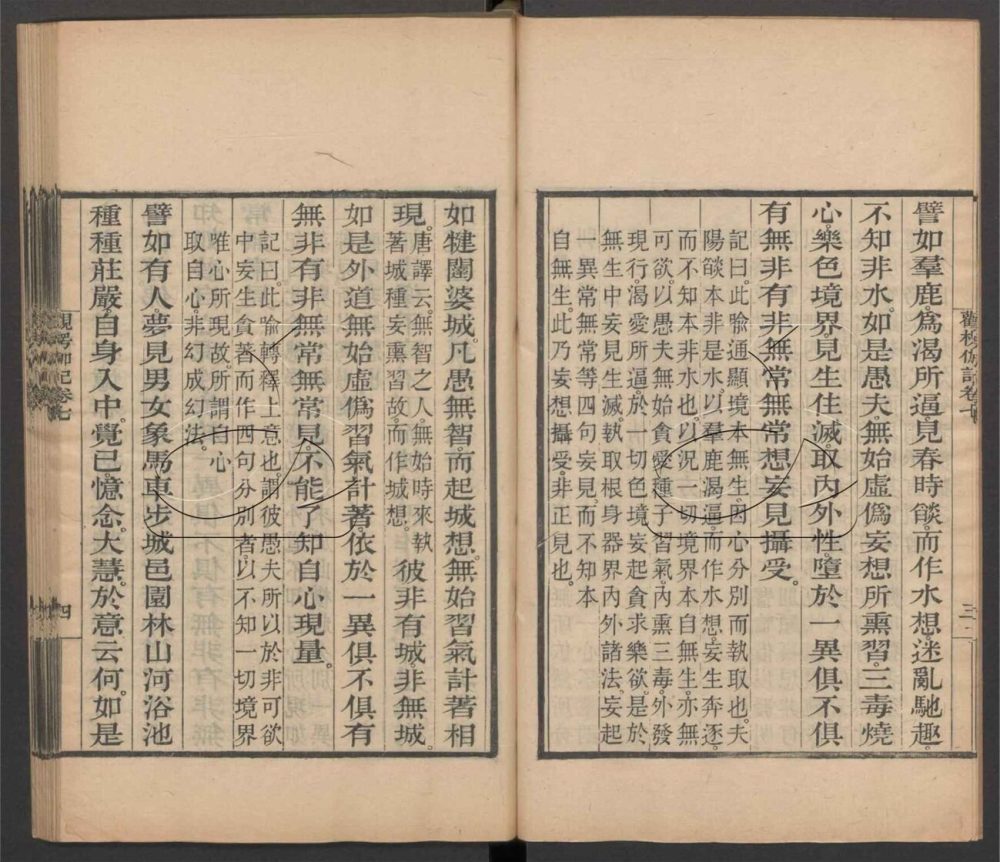 譬如羣鹿。爲渴所逼。見春時燄。而作水想。迷亂馳趣。
不知非水。如是愚夫。無始虛僞妄想所熏習。三毒燒
心。樂色境界。見生住滅。取內外性。墮於一異俱不俱
有無非有非無常無常想。妄見攝受。
記曰。此喻通顯境本無生。因心分別而執取也。夫
陽燄本非是水。以羣鹿渴逼。而作水想。妄生奔逐。
而不知本非水也。以況一切境界本自無生。亦無
可欲。以愚夫無始貪愛種子習氣。內熏三毒。外發
現行。渴愛所逼。於一切色境。妄起貪求樂欲。是於
無生中。妄見生滅。執取根身器界內外諸法。妄起
一異常無常等四句妄見。而不知本
自無生。此乃妄想攝受。非正見也。
觀楞伽記卷七
三
如犍闥婆城。凡愚無智。而起城想。無始習氣計著相
現。唐譯云。無智之人。無始時來。執
著城種妄熏習故。而作城想。
彼非有城。非無城。
如是外道無始虛僞習氣計著。依於一異俱不俱有
無非有非無常無常見。不能了知自心現量。
記曰。此喻轉釋上意也。謂彼愚夫所以於非可欲
中。妄生貪著而作四句分別者。以不知一切境界
唯心所現故。所謂自心
取自心。非幻成幻法。
譬如有人夢見男女象馬車步城邑園林山河浴池
種種莊嚴。自身入中。覺已憶念。大慧。於意云何。如是
觀楞伽記卷七
四